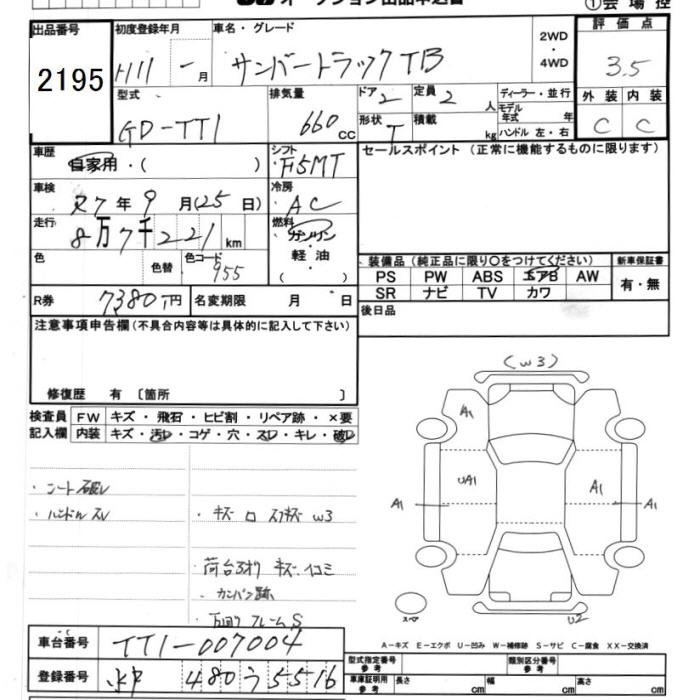 ①会場控
出品番号 初度登録年月 車名・グレード 評価点
2195 H11 年 月 サンバートラック TB 2WD・4WD 3.5
型式 排気量 ドア 定員 ディーラー・並行 外装 内装
GD-TT1 660 cc 2 2 人 モデル年式 年
形状 T 積載 kg ハンドル 左・右 C C
車歴 自家用・( ) シフト F5MT セールスポイント (正常に機能するものに限ります)
車検 R7年9月(25日) 冷房 AC
走行 8万7千221 km 燃料 ガソリン・軽油
色 色替 色コード 955 装備品(純正品に限り○をつけてください) 新車保証書
PS PW ABS エアB AW 有・無
R券 7380円 名変期限 月 日 SR ナビ TV カワ
後日品
注意事項申告欄(不具合内容等は具体的に記入して下さい)
修復歴 有 〔箇所 〕
検査員 FW キズ・飛石・ヒビ割・リペア跡・×要
記入欄 内装 キズ・汚れ・コゲ・穴・スレ・キレ・破れ
・シート破レ
・ハンドルスレ ・キズ ロ スリキズ W3
荷台 キズ・凹コミ
・カンバン跡
フレームS
(W3)
A1
UA1
A1 A1 A1
スペア U2
A-キズ E-エクボ U-凹み W-補修跡 S-サビ C-腐食 XX-交換済
車台番号 TT1-007004
型式指定番号 参考 類別区分番号 参考
登録番号 480 う 5516
車庫証明用 参考 長さ cm 幅 cm 高さ cm